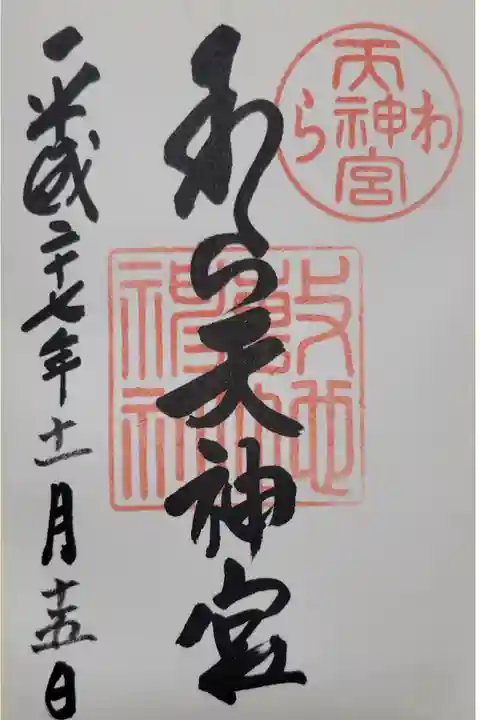 わら
天神宮
わら天神宮
敷地
神社
平成二十七年十一月十五日